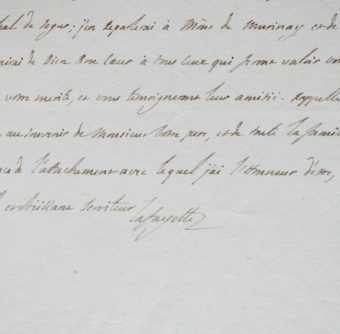 hal de Segur; j'en reparlerai à Mme de Murinay et de
de bien bon cœur à tous ceux qui font valoir
votre merite, et vous temoignent leur amitié. Rappellés
au souvenir de Monsieur votre pere, et de toute la famille
de l'attachement avec lequel j'ai l'honneur d'être,
obeissant serviteur
Lafayette